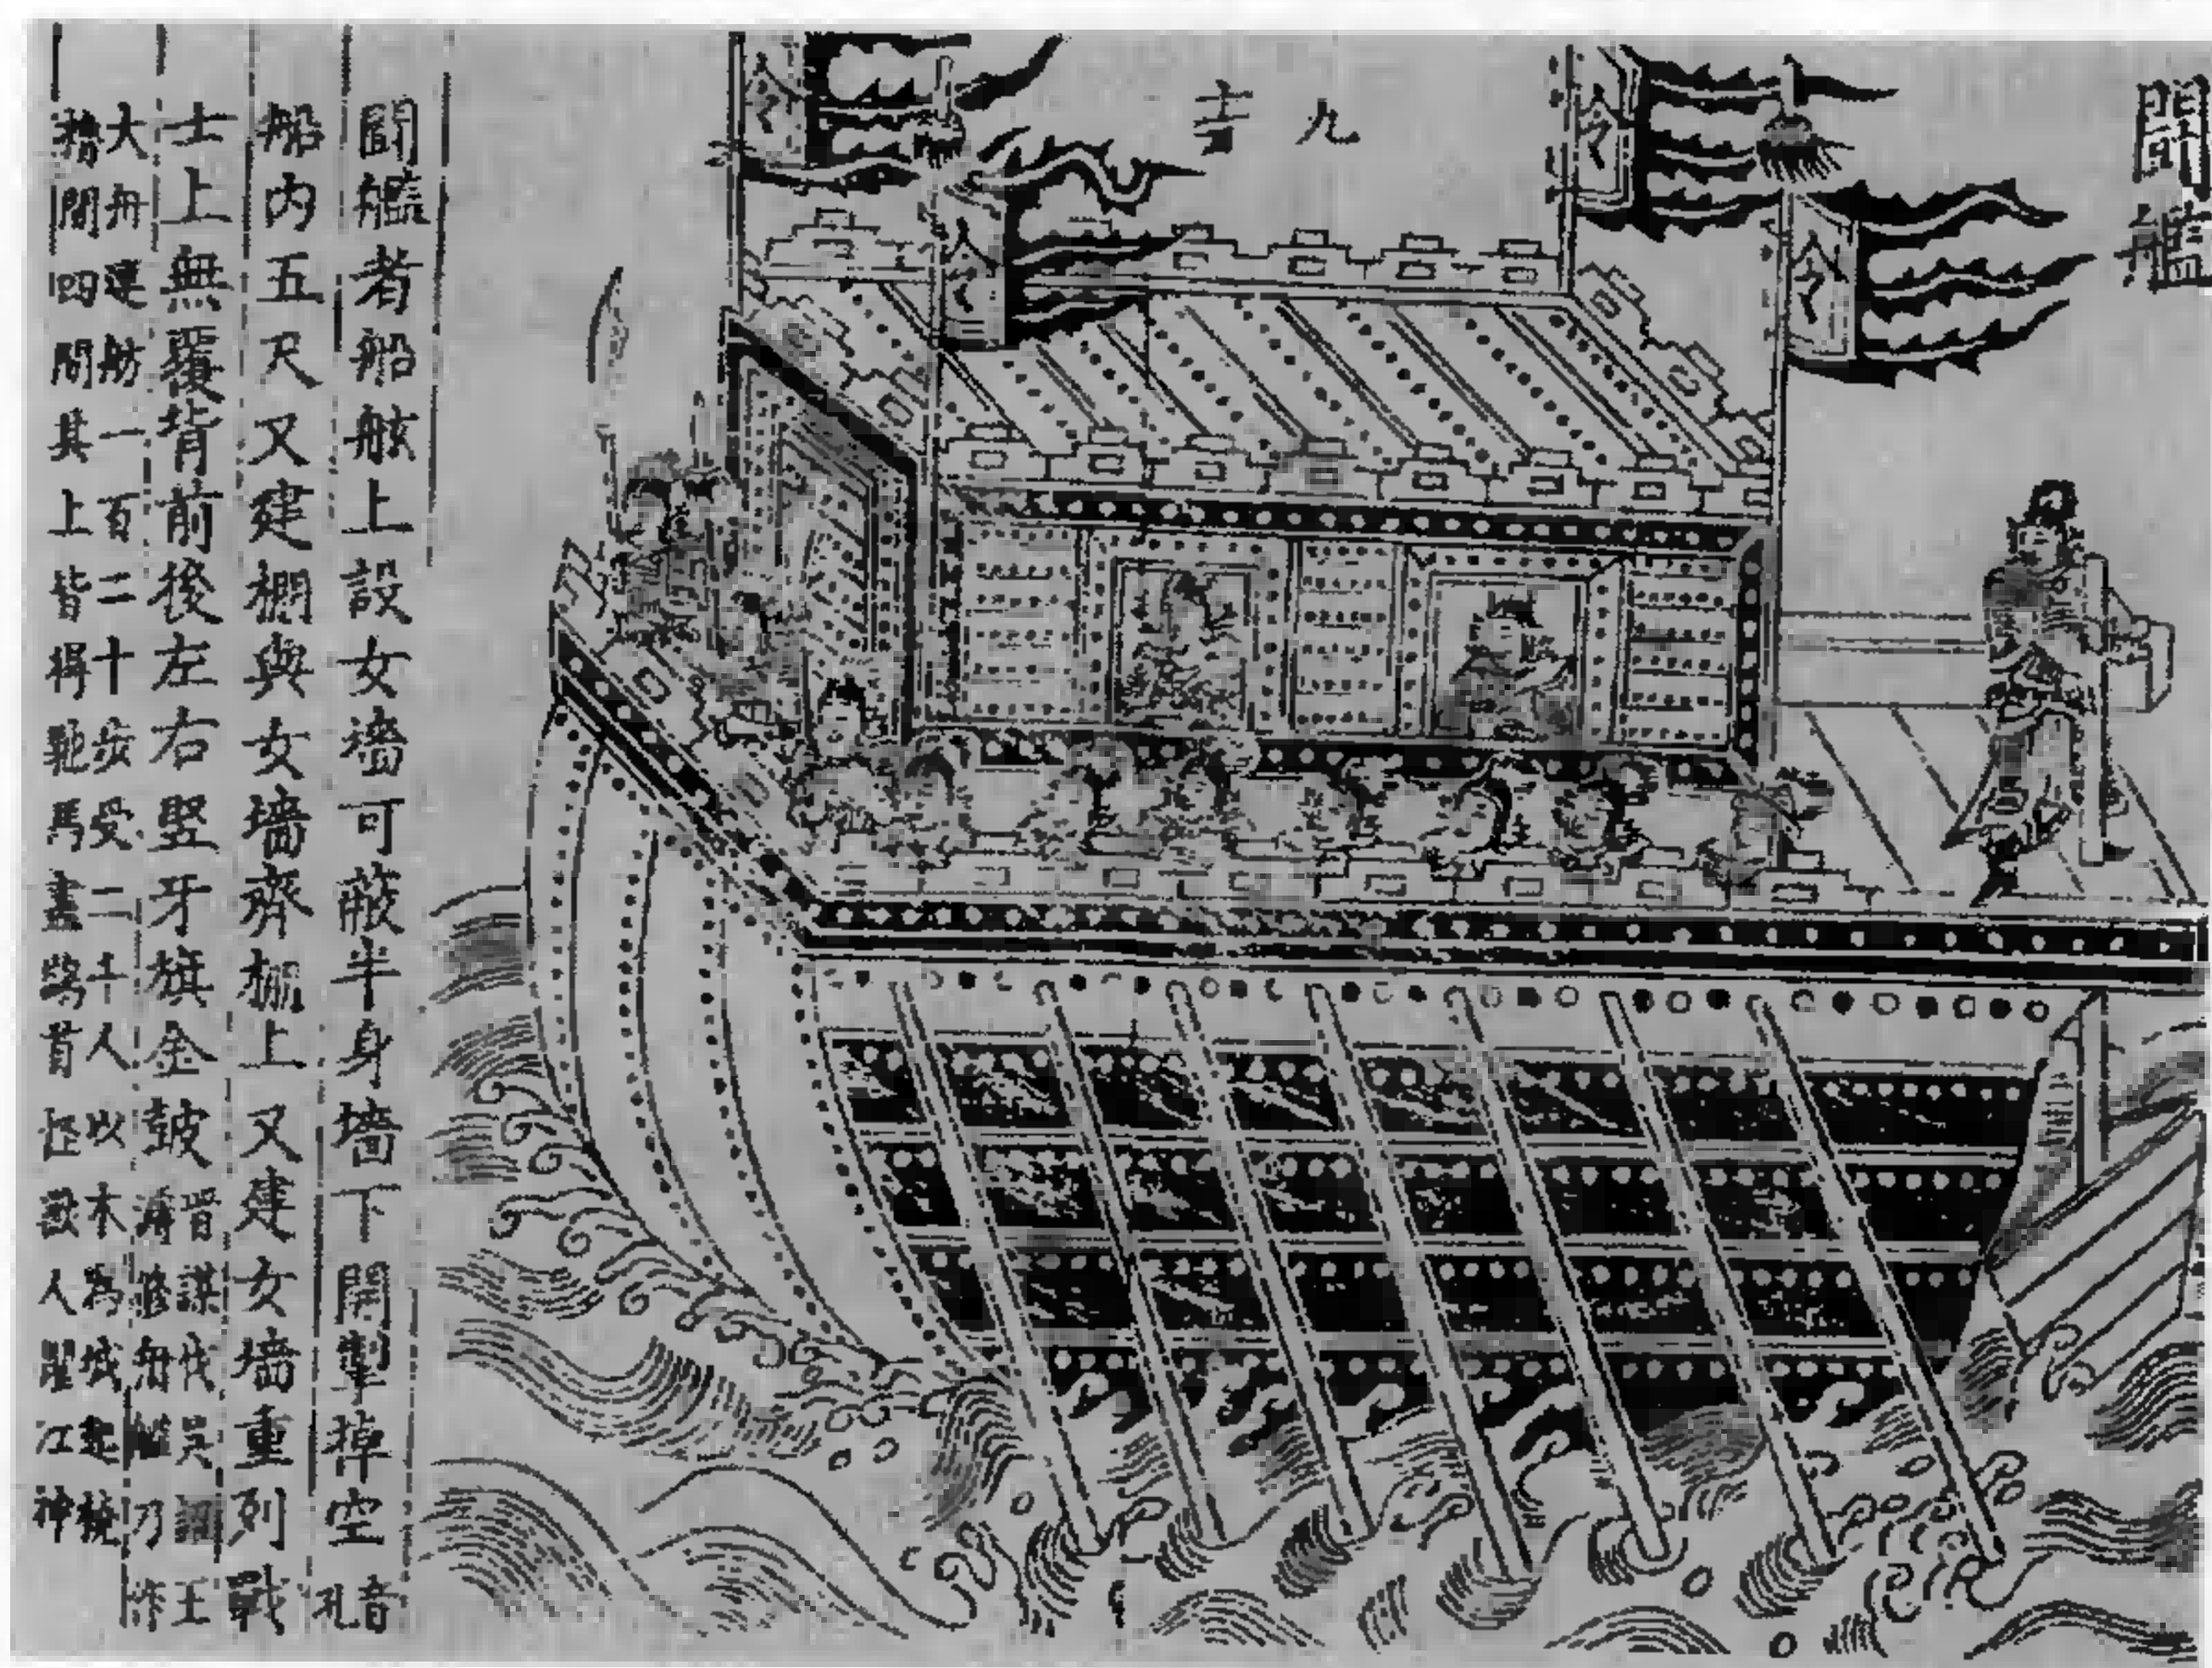 鬪艦
九
吉
令
令
令
令
鬪艦者船舷上設女牆可蔽半身墻下開掣棹空音孔
船內五尺又建棚與女墻齊棚上又建女墻重列戰
士上無覆背前後左右竪牙旗金鼓晋謀伐吳詔王
濬修舟艦乃作
大舟連舫一百二十步受二千人以木爲城起樓
櫓開四門其上皆得馳馬畫鷁首怪獸人

江神